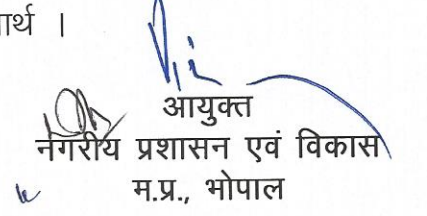 ार्थ ।
आयुक्त
नगरीय प्रशासन एवं विकास
म.प्र., भोपाल